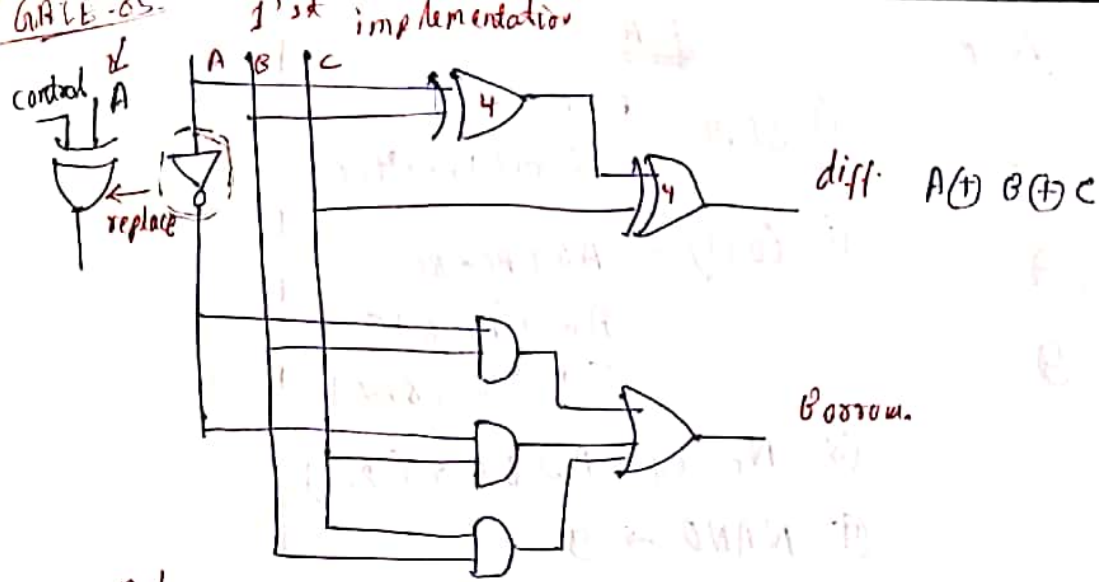 GATE-05. 1'st implementation
A B C
control A
4
replace
4
diff. A⊕ B⊕C
Borrow.